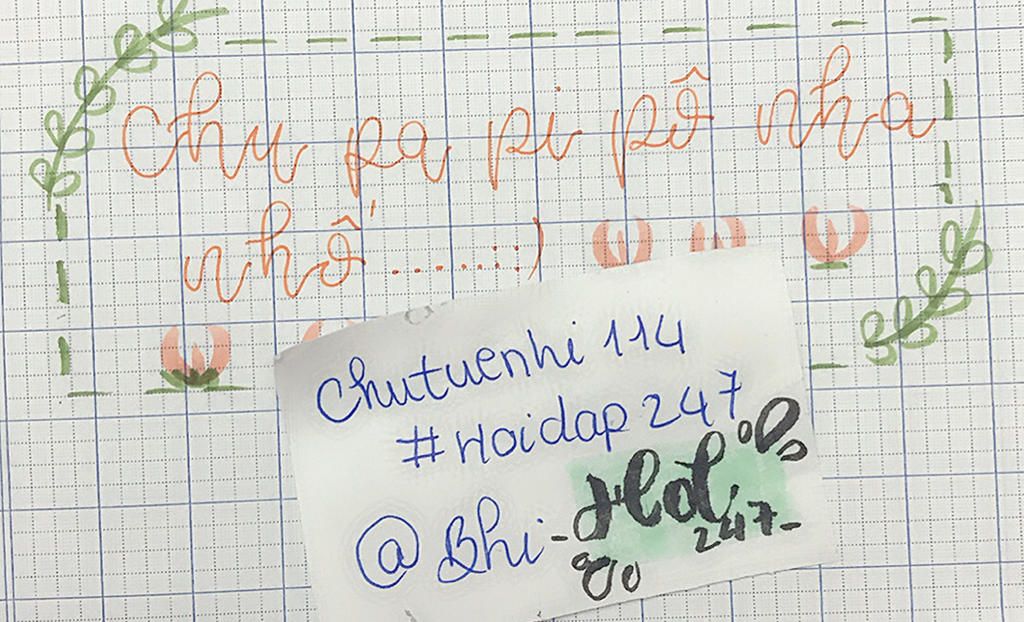 Chu pa pi pô nha
nhố ......:)
Chutuenhi 114
#Hoidap 247
@Bhi
-Hd
247-